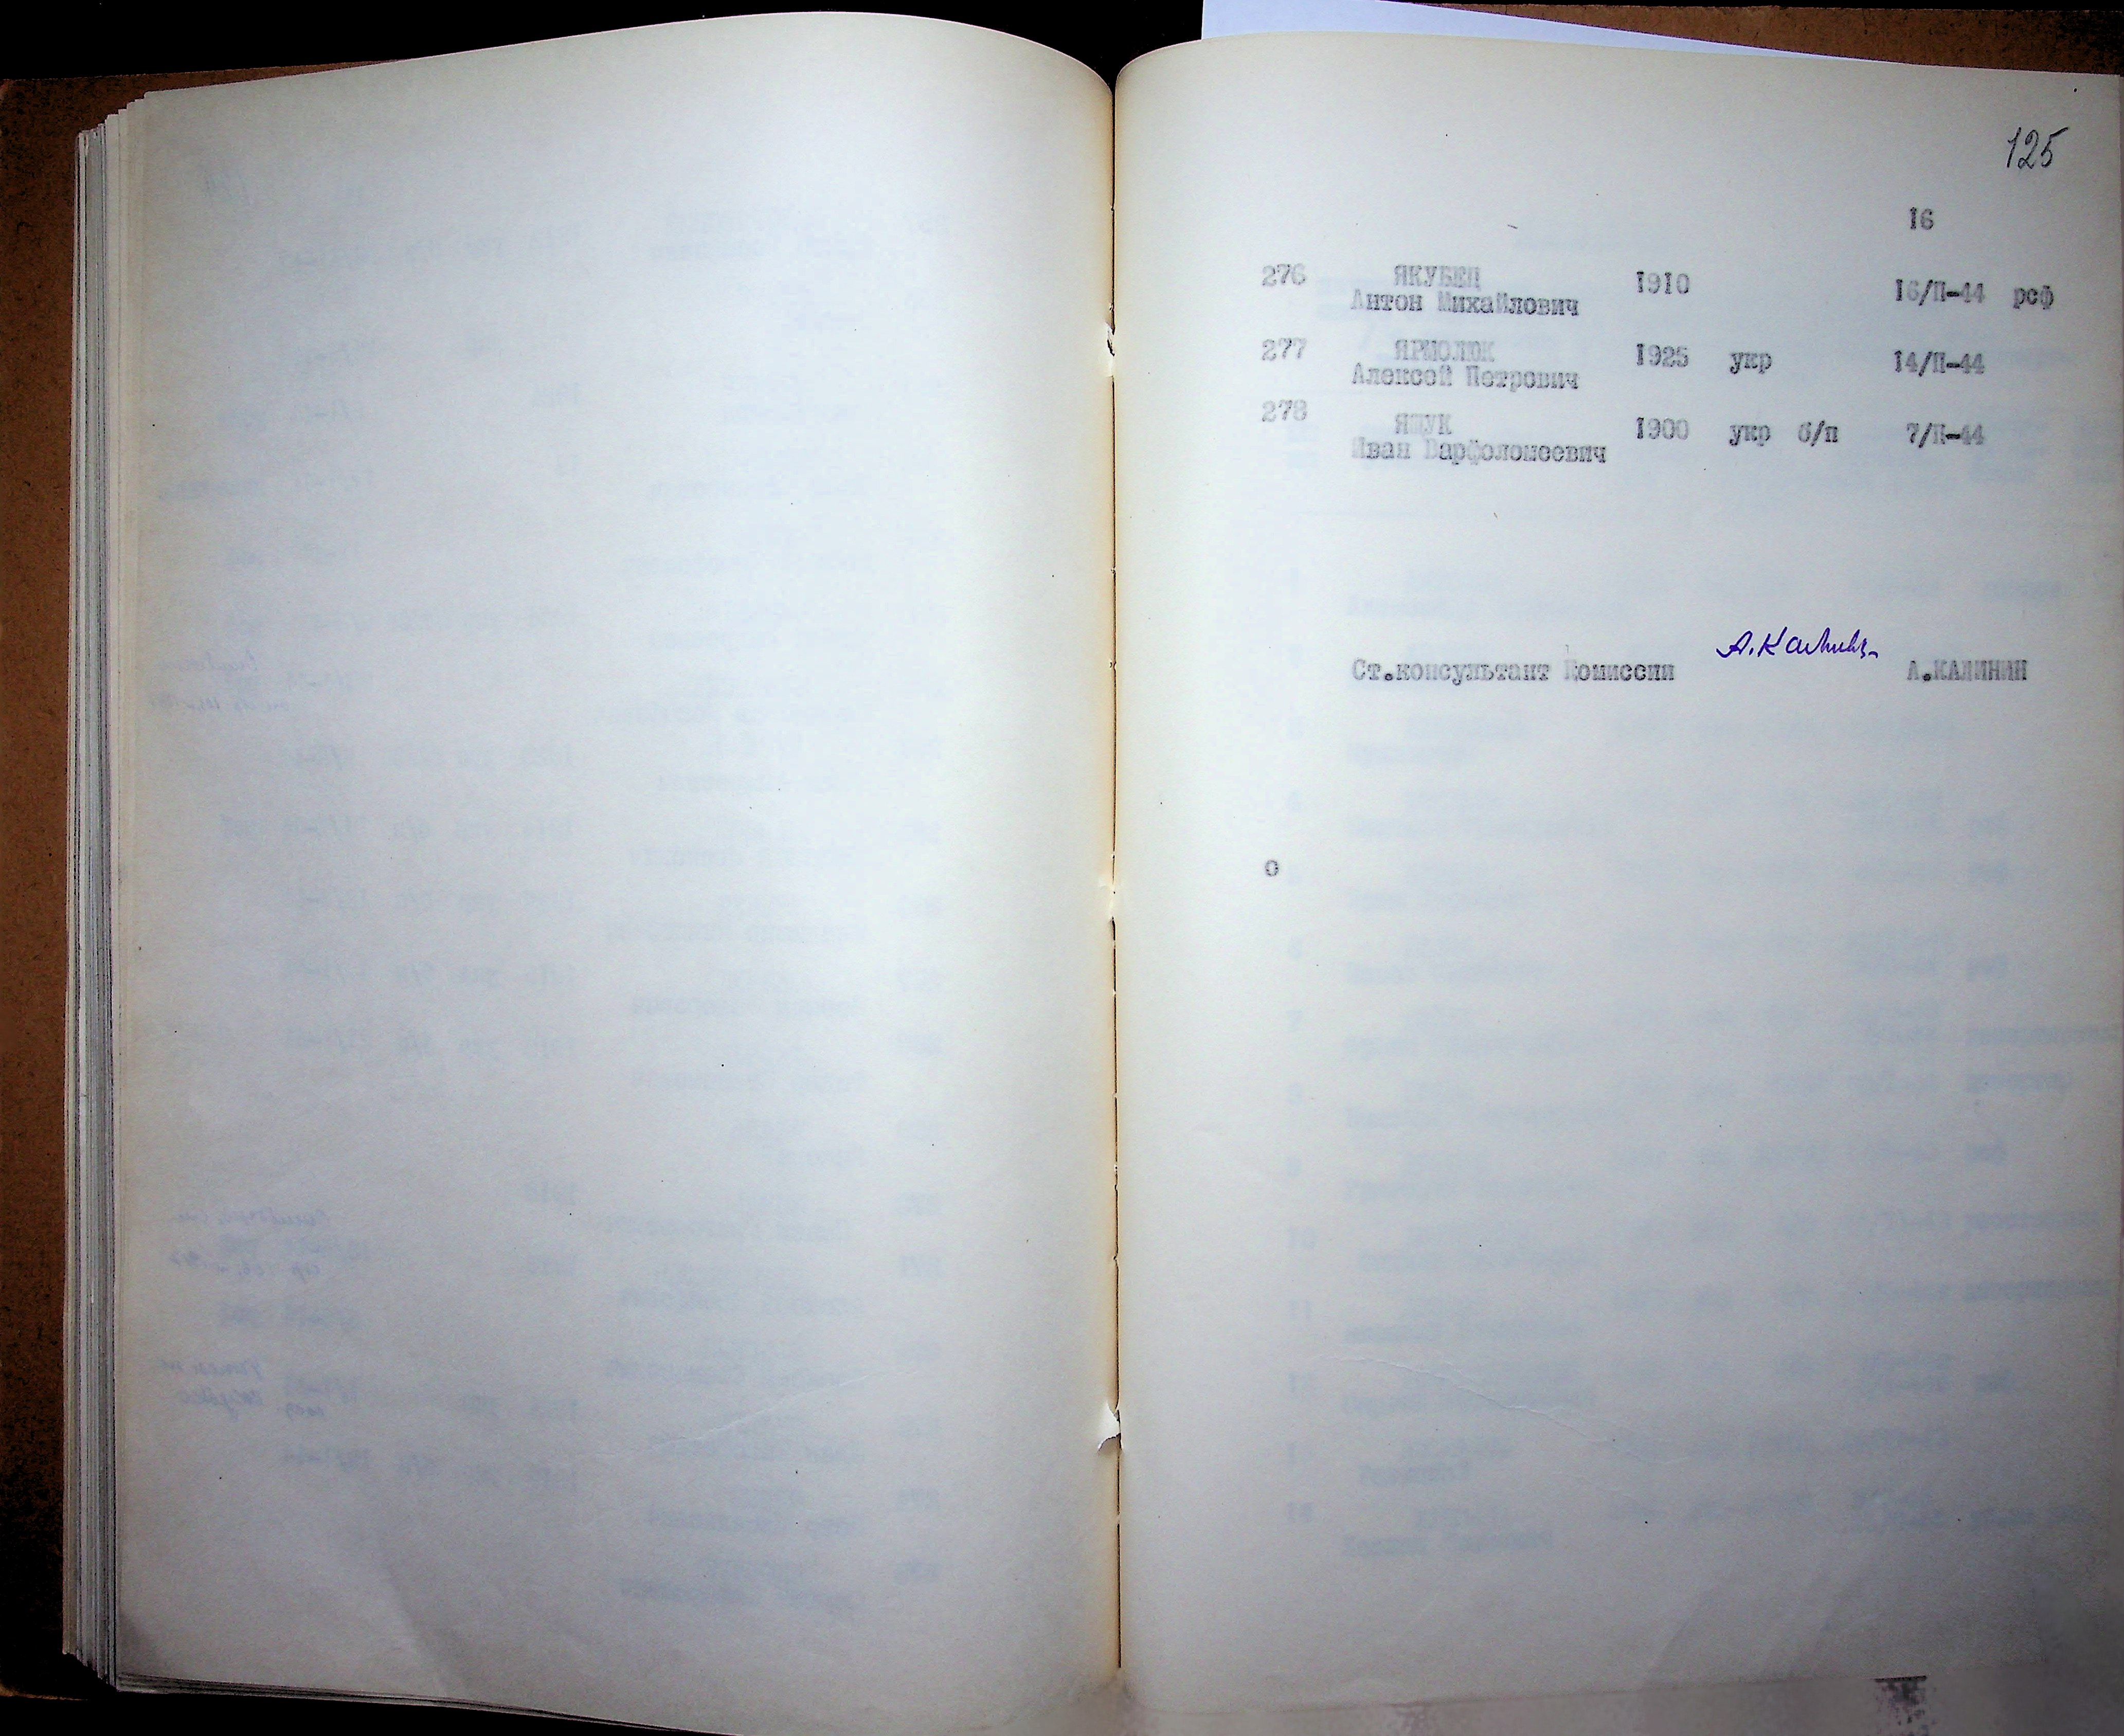 125
16
276 ЯКУБЕЦ 1910 16/П-44 рсф
Антон Михайлович
277 ЯРМОЛЮК 1925 укр 14/П-44
Алексей Петрович
278 ЯЩУК 1900 укр б/п 7/П-44
Иван Варфоломеевич
А.Калинин
Ст.консультант Комиссии А.КАЛИНИН
о